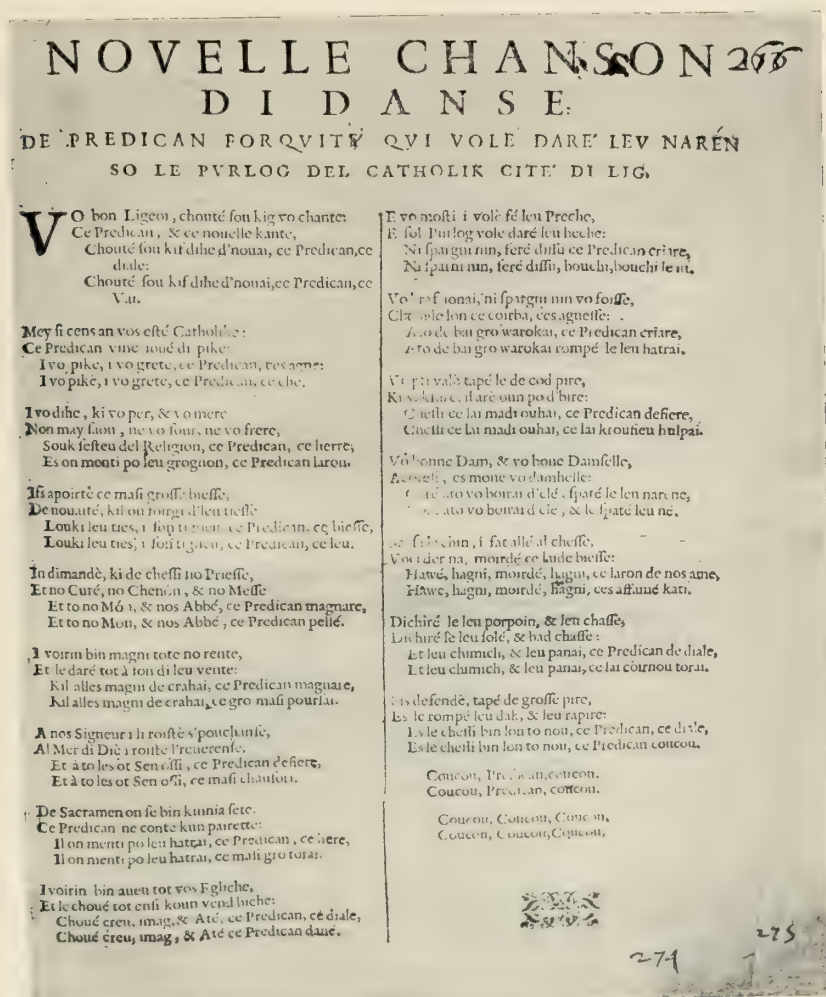 NOVELLE CHANSON 266
DI DANSE.
DE PREDICAN FORQVITY QVI VOLE DARE' LEV NARÉN
SO LE PVRLOG DEL CATHOLIK CITE' DI LIG.
VO bon Ligeoi, chouté sou kig vo chante:
Ce Predican, & ce nouelle kante,
Chouté sou kif dihe d'nouai, ce Predican, ce
diale:
Chouté sou kif dihe d'nouai, ce Predican, ce
Mey si cens an vos esté Catholike:
Ce Predican vine ioué di pike
I vo pike, i vo grete, ce Predican, ces agne:
I vo pikè, i vo grete, ce Predican, ce che.
I vo dihe, ki vo per, & vo mere
Non may siou, ne vo sour, ne vo frere,
Souk sesteu del Religion, ce Predican, ce herre,
Es on menti po leu grognon, ce Predican laron.
apoirtè ce masi grosse biesse,
De nouaité, kil on forgi d'leu tiesse
Louki leu ties, i son tignen, ce Predican, ce biesse,
Louki leu ties, i son tignen, ce Predican, ce leu.
In dimandè, ki de chessi no Priesse,
Et no Curé, no Chenón, & no Messe
Et to no Món, & nos Abbé, ce Predican magnare,
Et to no Mon, & nos Abbé, ce Predican pellé.
I voirin bin magni tote no rente,
Et le daré tot à fon di leu vente:
Kil alles magni de crahai, ce Predican magnare,
Kil alles magni de crahai, ce gro masi pourlai.
A nos Signeur i li roistè s'pouchanse,
Al Mer di Diè i roiste l'reuerense,
Et à to les ot Sen ossi, ce Predican defiere,
Et à to les ot Sen ossi, ce masi chausson.
De Sacramen on se bin kinnia sete.
Ce Predican ne conte kun pairette:
Il on menti po leu hatrai, ce Predican, ce here,
Il on menti po leu hatrai, ce masi gro torai.
I voirin bin aueu tot vos Egliche,
Et le choué tot ensi koun vend biche:
Choué creu, imag, & Até, ce Predican, cé diale,
Choué creu, imag, & Até ce Predican dané.
E vo mosti i volè fé leu Preche,
E sol Purlog vole daré leu beche:
Ni spargni nin, feré dissu ce Predican criare,
Ni sparni nin, feré dissu, bouchi, bouchi le ni.
Vo ionai, ni spargni nin vo foisse,
le lon ce coirba, ces agnesse:
Ato de bai gro warokai, ce Predican criare,
Ato de bai gro warokai rompé le leu hatrai.
valè tapé le de cod pire,
il arè oun po d'bire:
Chessi ce lai madi ouhai, ce Predican defiere,
Chessi ce lai madi ouhai, ce lai kroufieu hulpai.
Vo bonne Dam, & vo bone Damselle,
es mone vo damhelle:
ato vo boirai d'clé, spaté le leu narene,
ato vo boirai d'cle, & le spaté leu né.
bin, i fat allé al chesse,
na, moirdé ce lude biesse:
Hawé, hagni, moirdé, hagni, ce laron de nos ame,
Hawe, hagni, moirdé, hagni, ces affumé kati.
Dichiré le leu porpoin, & leu chasse,
Dichiré se leu solé, & bad chasse:
Et leu chimich, & leu panai, ce Predican de diale,
Et leu chimich, & leu panai, ce lai coirnou torai.
defendè, tapé de grosse pire,
Es le rompé leu dak, & leu rapire:
Es le chessi bin lon to nou, ce Predican, ce diale,
Es le chessi bin lon to nou, ce Predican coucou.
Coucou, Predican, coucou.
Coucou, Predican, coucou.
Coucou, Coucou, Coucou,
Coucou, Coucou, Coucou.
275
274